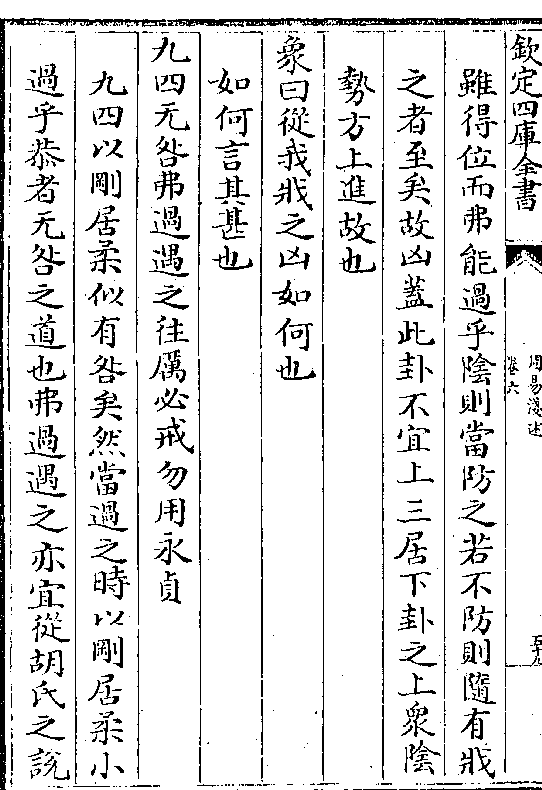 欽定四庫全書
周易淺述
卷六
五十九
雖得位而弗能過乎陰則當防之若不防則隨有戕
之者至矣故凶蓋此卦不宜上三居下卦之上衆陰
勢方上進故也
象曰從或戕之凶如何也
如何言其甚也
九四无咎弗過遇之往厲必戒勿用永貞
九四以剛居柔似有咎矣然當過之時以剛居柔小
過乎恭者无咎之道也弗過遇之亦宜從胡氏之説